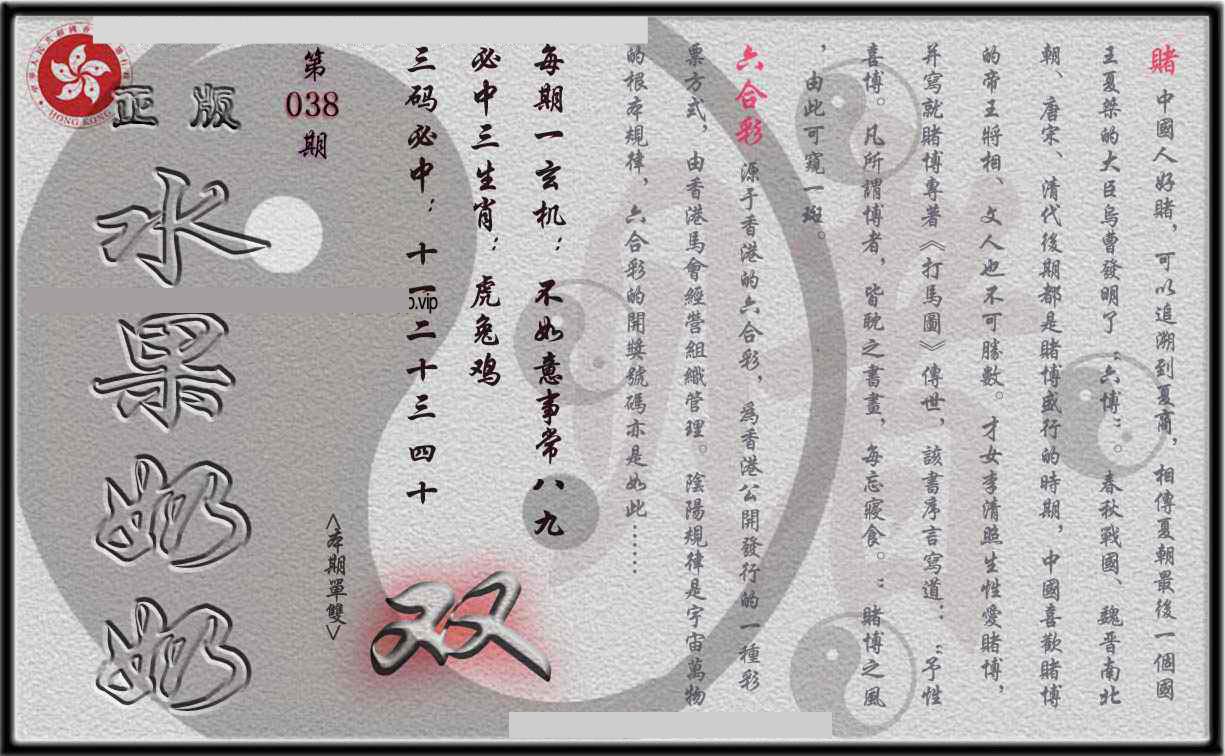 賭 中國人好賭，可以追溯到夏商，相傳夏朝最後一個國
王夏桀的大臣烏曹發明了“六博”。春秋戰國、魏晋南北
朝、唐宋、清代後期都是賭博盛行的時期，中國喜歡賭博
的帝王將相、文人也不可勝數。才女李清照生性愛賭博，
并寫就賭博專著《打馬圖》傳世，該書序言寫道：“予性
喜博。凡所謂博者，皆耽之書畫，每忘寢食。”賭博之風
，由此可窺一斑。
六合彩 源于香港的六合彩，為香港公開發行的一種彩
票方式，由香港馬會經營組織管理。陰陽規律是宇宙萬物
的根本規律，六合彩的開獎號碼亦是如此……
每期一玄机：不如意事常八九
必中三生肖：虎兔鸡
三码必中：十一二十三四十
第
038
期
正版
水果奶奶
<本期單雙>
双
HONG KONG
p.vip